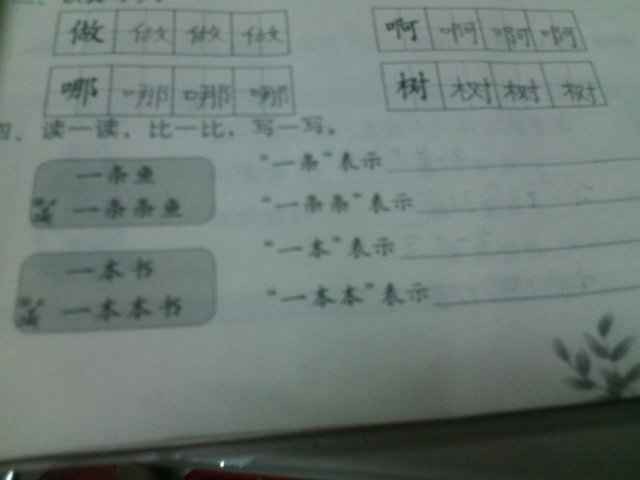 做 做 做 做 啊 啊 啊 啊
哪 哪 哪 哪 树 树 树 树
四、读一读，比一比，写一写。
一条鱼 “一条”表示
一条条鱼 “一条条”表示
一本书 “一本”表示
一本本书 “一本本”表示